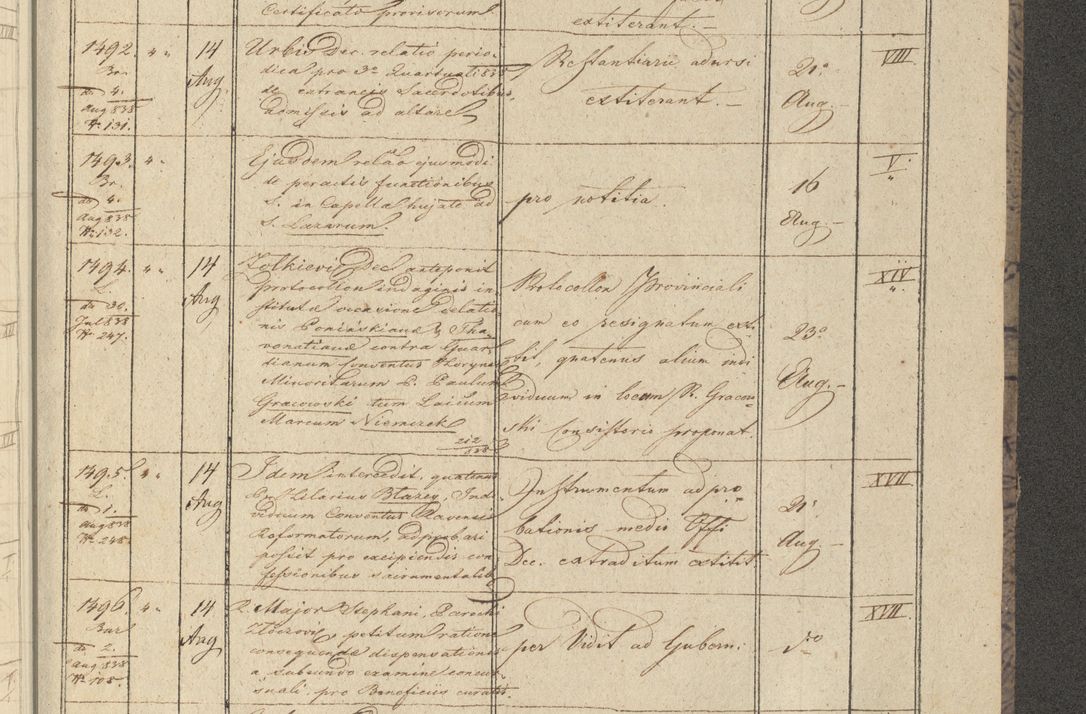 Certificato provisorum.
extiterant. —
1492. " "
Br.
do 4.
Aug 838
No 131.
14
Aug
Urbis Dec. relatio perio-
dica pro 3o Quartuali 838
de extraneis Sacerdotibus,
admissis ad altare
Restantiarii adursi
extiterant. —
21a
Aug. —
VIII
1493. " "
Br.
do 4.
Aug 838
No 132.
14
Aug
Ejusdem relao ejusmodi
de peractis functionibus
S. in Capella hujate ad
S. Lazarum.
pro notitia.
16
Aug. —
V.
"
1494. " "
L.
do 30.
Jul 838
No 247.
14
Aug
Zolkievis Dec anteponit
protocollon indaginis in-
stitutae occasione delatio-
nis Poniaskianae & Tha-
vonatianae contra Guar-
dianum Conventus
Minoritarum P. Paulum
Gracowski tum Laicum
Marcum Niemczek
212
838
Protocollon Provinciali
cum eo resignatum exti-
tit, quatenus alium indi
viduum in locum P. Gracow-
ski Consistorio proponat.
23a
Aug. —
XIV
"
1495. " "
L.
do 1.
Aug 838
No 248.
14
Aug
Idem intercedit, quatenus
P. Hilarius Blazey, Indi-
viduum Conventus Ravensis
Reformatorum, adprobari
possit pro excipiendis con-
fessionibus sacramentalib.
Instrumentum adpro-
bationis medio Offi
Dec. extraditum extitit.
21a
Aug. —
XVII
1496. " "
Bar
do 2.
Aug 838
No 105.
14
Aug
R. Major Stephani, Parochi
Zloczovis, petitum ratione
consequendae dispensationis
a subeundo examine concur-
suali pro Beneficiis curatis.
per Vidit ad Gubern.
XVII